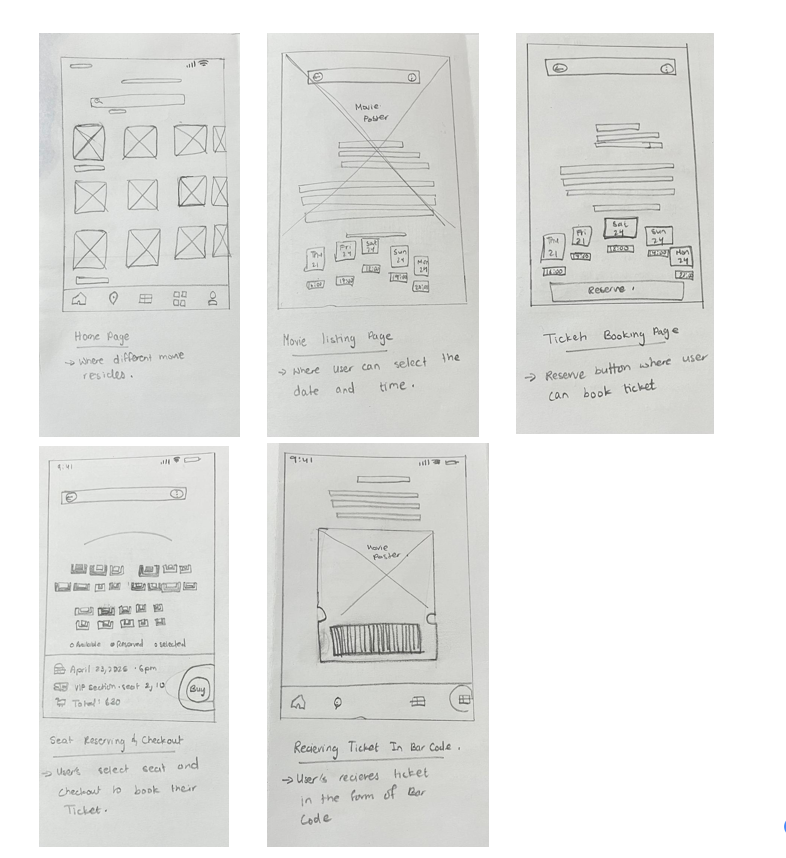 Home Page
→ Where different movie
resides.
Movie
Poster
Thu
21
Fri
21
Sat
24
Sun
24
Mon
24
Movie listing Page
→ Where user can select the
date and time.
Thu
21
Fri
21
Sat
24
Sun
24
Mon
24
Reserve.
Ticket Booking Page
→ Reserve button where user
can book ticket
9:41
Available Reserved selected
April 23, 2025 · 6pm
VIP Section · seat 9, 10
Total:
Buy
Seat Reserving & Checkout
→ User's select seat and
Checkout to book their
Ticket.
9:41
Movie
Poster.
Recieving Ticket In Bar Code.
→ User's recieves ticket
in the form of Bar
Code